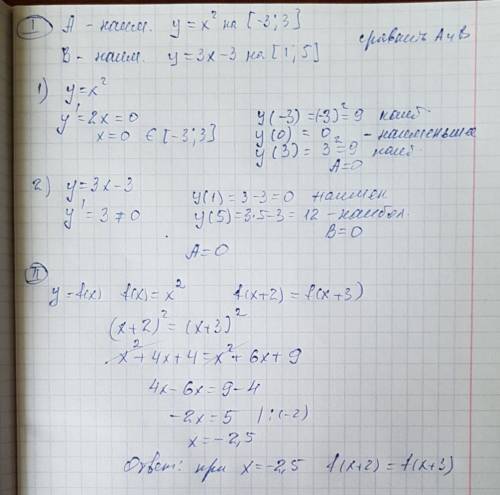 I А - наим. y = x² на [-3; 3]
сравнить А и В
В - наим. y = 3x - 3 на [1; 5]
1) y = x²
y' = 2x = 0
x = 0 ∈ [-3; 3]
y(-3) = (-3)² = 9 наиб
y(0) = 0 - наименьшее
y(3) = 3² = 9 наиб
A = 0
2) y = 3x - 3
y' = 3 ≠ 0
y(1) = 3 - 3 = 0 наимен
y(5) = 3·5 - 3 = 12 - наибол.
B = 0
A = 0
II
y = f(x) f(x) = x² f(x+2) = f(x+3)
(x+2)² = (x+3)²
x² + 4x + 4 = x² + 6x + 9
4x - 6x = 9 - 4
-2x = 5 | :(-2)
x = -2,5
Ответ: при x = -2,5 f(x+2) = f(x+3)